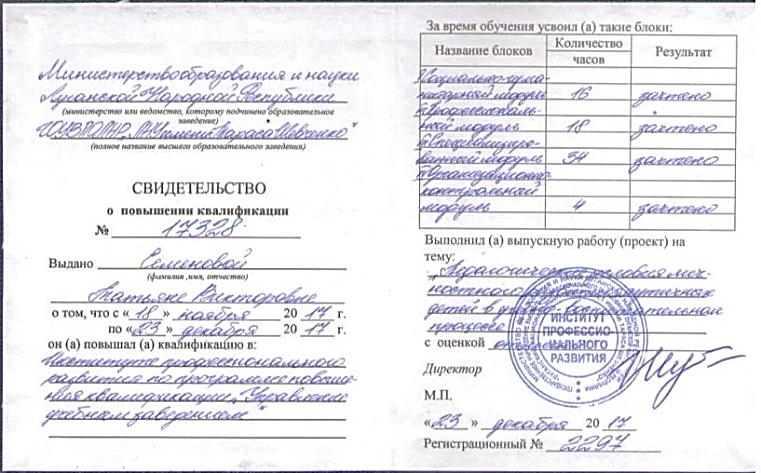 Министерство образования и науки
Луганской Народной Республики
(министерство или ведомство, которому подчинено образовательное
заведение)
ГОУ ВПО ЛНР "ЛНУ имени Тараса Шевченко"
(полное название высшего образовательного заведения)
СВИДЕТЕЛЬСТВО
о повышении квалификации
№ 17328
Выдано Семеновой
(фамилия, имя, отчество)
Татьяне Викторовне
о том, что с « 18 » ноября 20 17 г.
по « 23 » декабря 20 17 г.
он (а) повышал (а) квалификацию в:
Институте профессионального
развития по программе повыше-
ния квалификации "Управление
учебным заведением"
За время обучения усвоил (а) такие блоки:
Название блоков Количество часов Результат
1) Социально-гума-
нитарный модуль 16 зачтено
2) Профессиональ-
ный модуль 18 зачтено
модуль 34 зачтено
контрольный
модуль 4 зачтено
Выполнил (а) выпускную работу (проект) на
тему:
"Педагогические условия лич-
детей в
процессе
с оценкой
ИНСТИТУТ
ПРОФЕССИО-
НАЛЬНОГО
РАЗВИТИЯ
Директор
М.П.
« 23 » декабря 20 17
Регистрационный № 2297